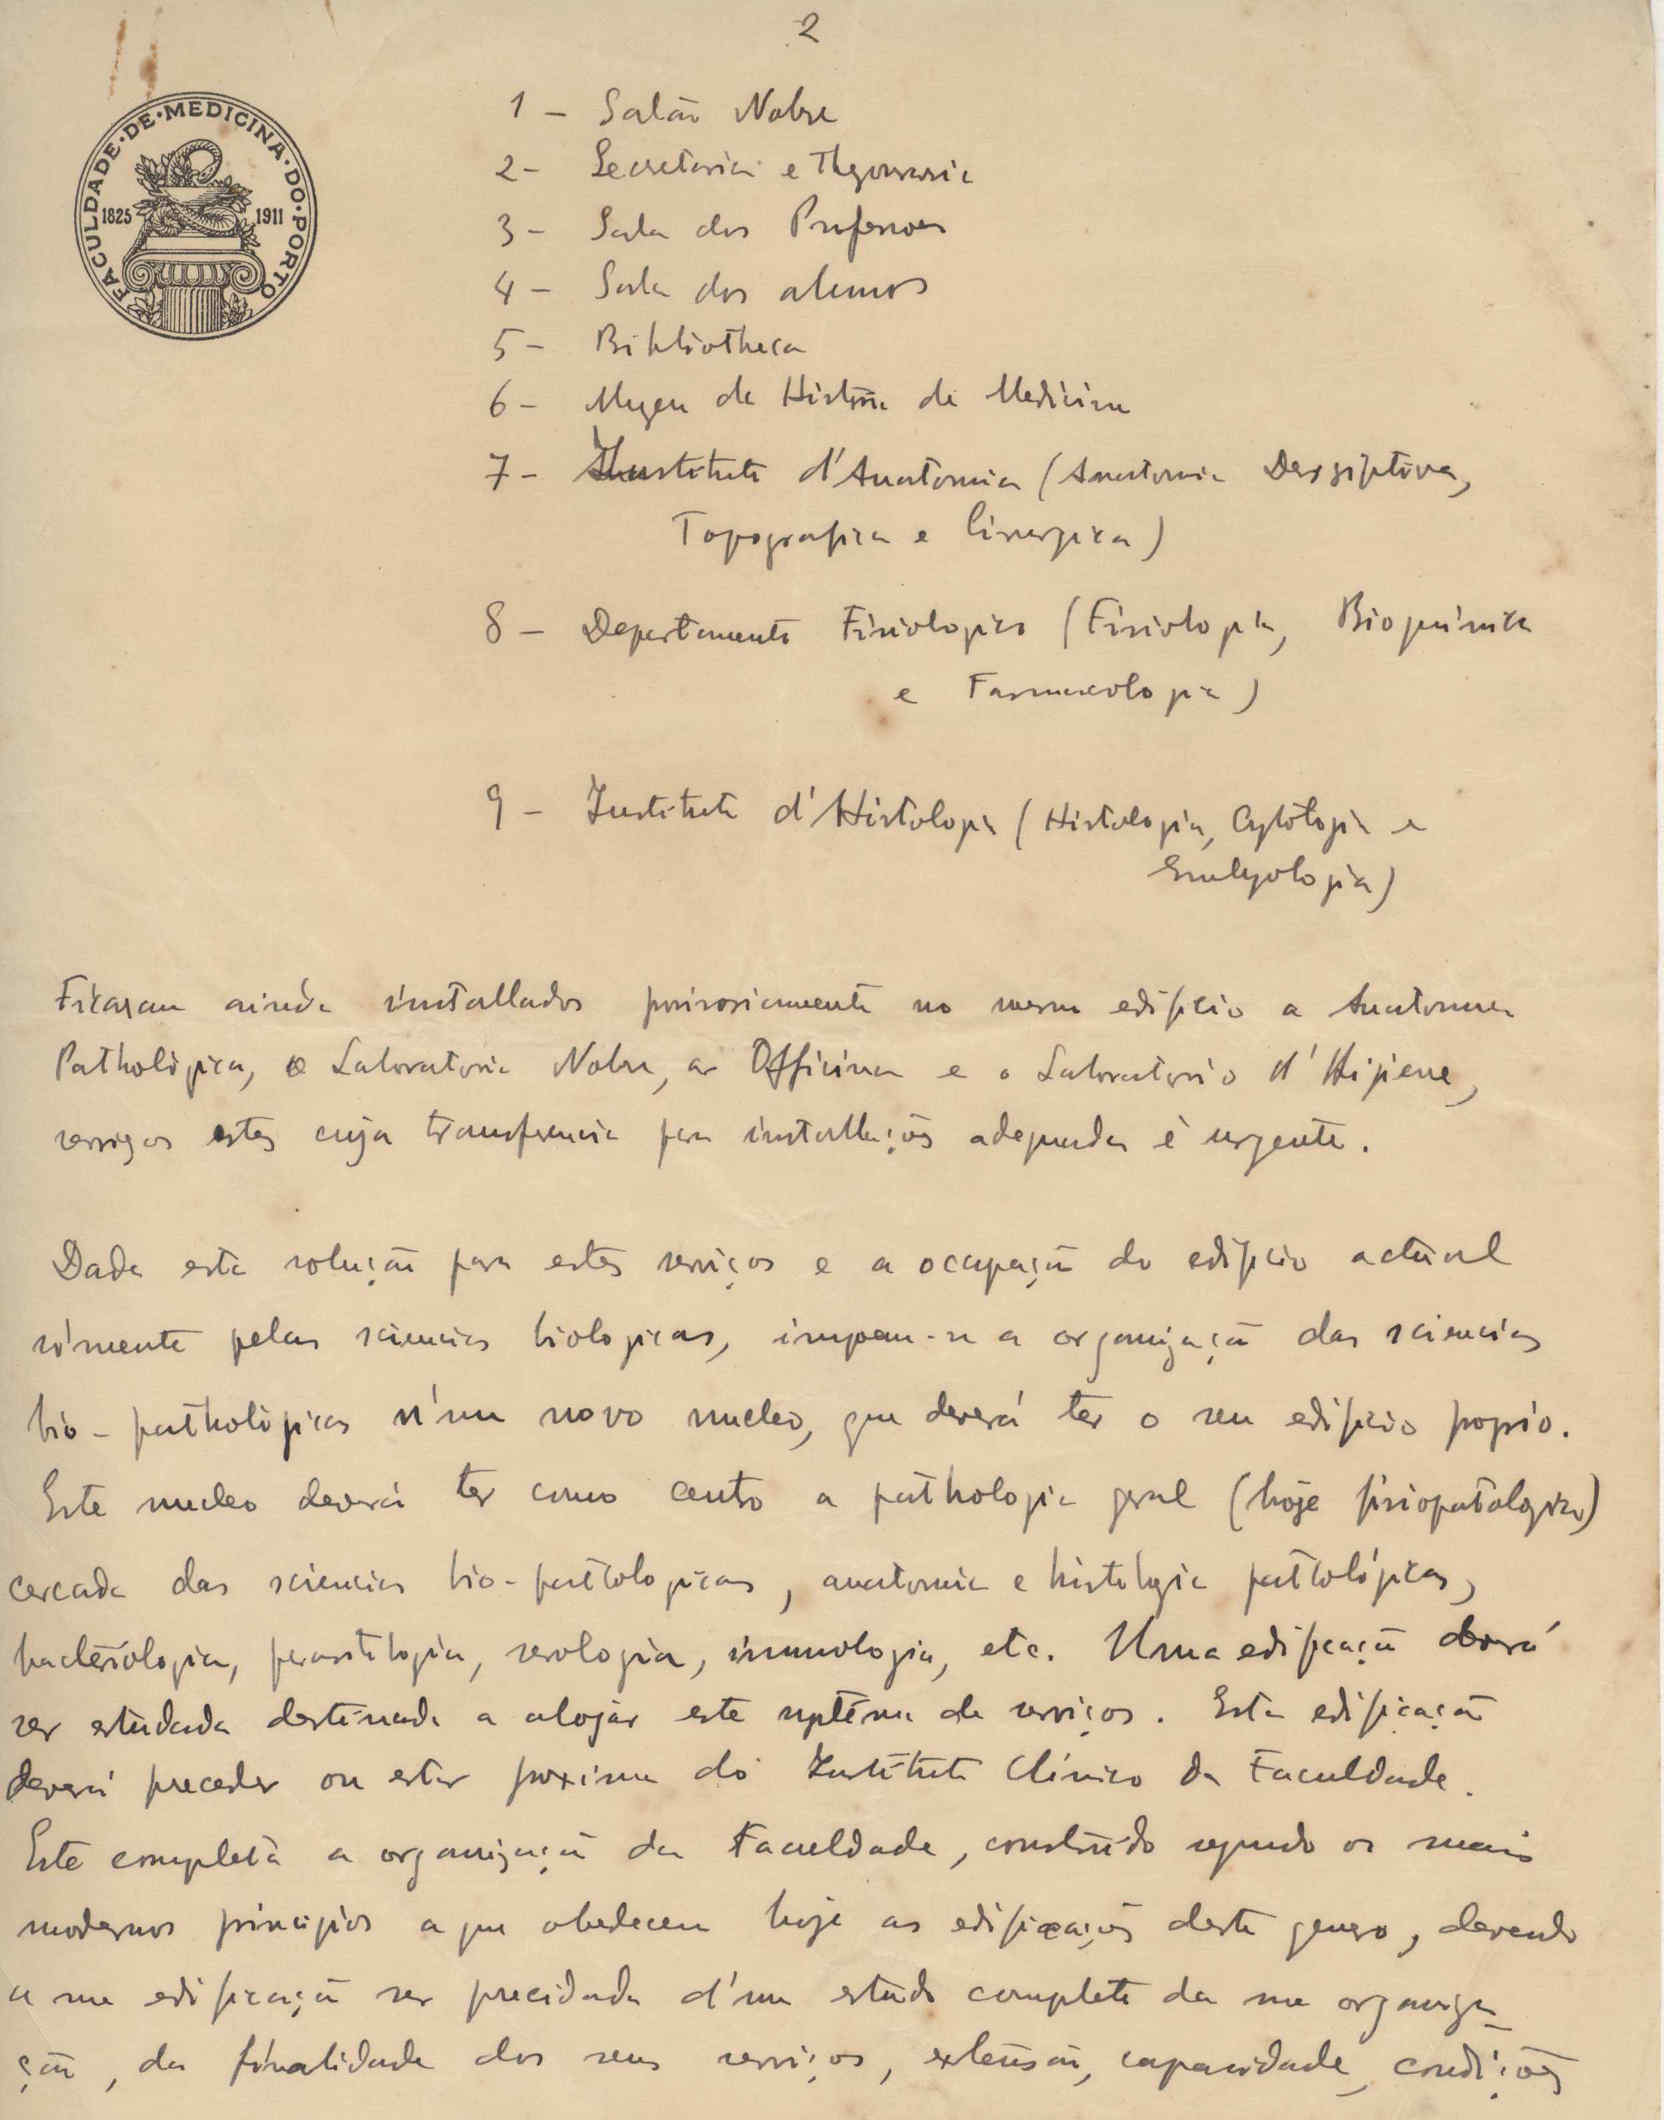 2
FACULDADE·DE·MEDICINA·DO·PORTO
1825 1911
1 – Salão Nobre
2 – Secretaria e Thezouraria
3 – Sala dos Professores
4 – Sala dos alumnos
5 – Bibliotheca
6 – Muzeu de Historia da Medicina
7 – Instituto d'Anatomia (Anatomia Descriptiva,
Topografica e Cirurgica)
8 – Departamento Fisiologico (Fisiologia, Bioquimica
e Farmacologia)
9 – Instituto d'Histologia (Histologia, Cytologia e
Embryologia)
Ficaram ainda installados provisoriamente no mesmo edificio a Anatomia
Pathològica, o Laboratorio Nobre, as Officinas e o Laboratorio d'Higiene,
serviços estes cuja transferencia para installações adequadas é urgente.
Dada esta solução para estes serviços e a occupação do edificio actual
sómente pelas sciencias biologicas, impoem-se a organização das sciencias
bio-pathològicas n'um novo nucleo, que deverá ter o seu edificio proprio.
Este nucleo deverá ter como centro a pathologia geral (hoje fisiopatologica)
cercada das sciencias bio-pathologicas, anatomia e histologia pathològicas,
bacteriologia, parasitologia, serologia, imunologia, etc. Uma edificação deverá
ser estudada destinada a alojar este systema de serviços. Esta edificação
deverá preceder ou estar proxima do Instituto Clinico da Faculdade.
Este completa a organização da Faculdade, construido segundo os mais
modernos principios a que obedecem hoje as edificações deste genero, devendo
a sua edificação ser precidada d'um estudo completo da sua organiza-
ção, da finalidade dos seus serviços, extensão, capacidade, condições